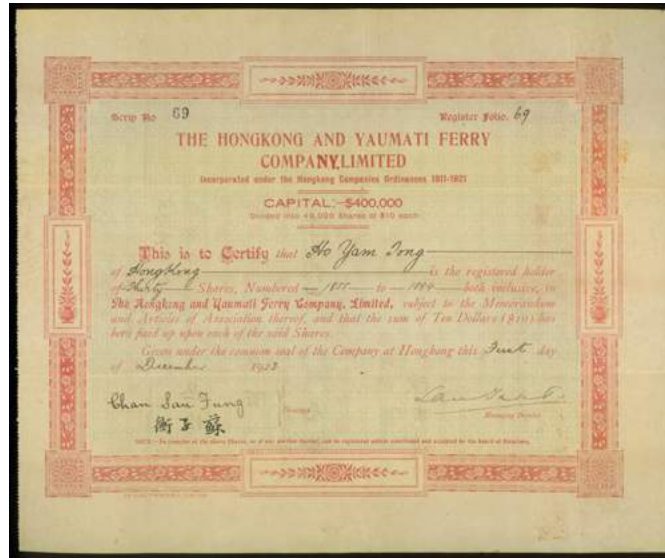 Scrip No 69 Register Folio. 69
THE HONGKONG AND YAUMATI FERRY
COMPANY, LIMITED
Incorporated under the Hongkong Companies Ordinances 1911-1921
CAPITAL:-$400,000
Divided into 40,000 Shares of $10 each
This is to Certify that Ho Yam Tong
of HongKong is the registered holder
of Thirty Shares, Numbered to both inclusive, in
The Hongkong and Yaumati Ferry Company, Limited, subject to the Memorandum
and Articles of Association thereof, and that the sum of Ten Dollars ($10) has
been paid up upon each of the said Shares.
Given under the common seal of the Company at Hongkong this First day
of December 1923
Chan Sau Fung
Managing Director